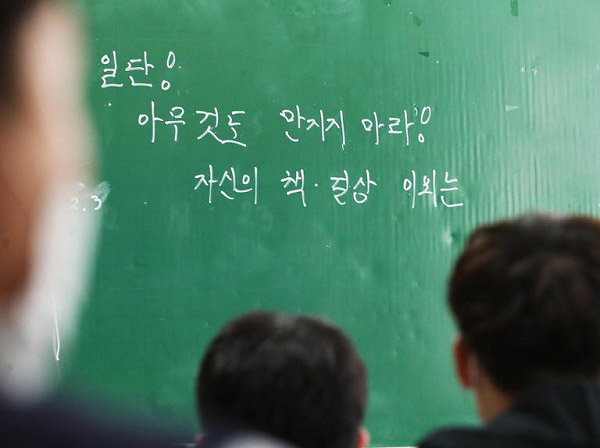 일단!
아무것도 만지지 마라!
자신의 책·걸상 이외는
2.3